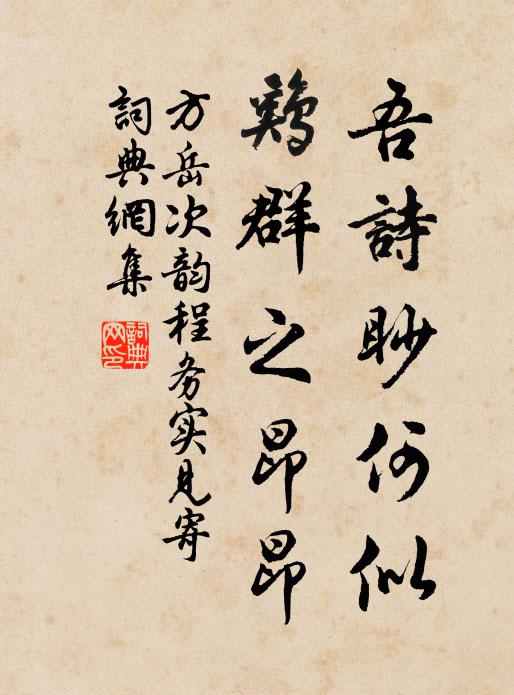 吾詩眇何似
鷄群之昂昂
方岳次韵程务实见寄
詞典網集
詞典网印